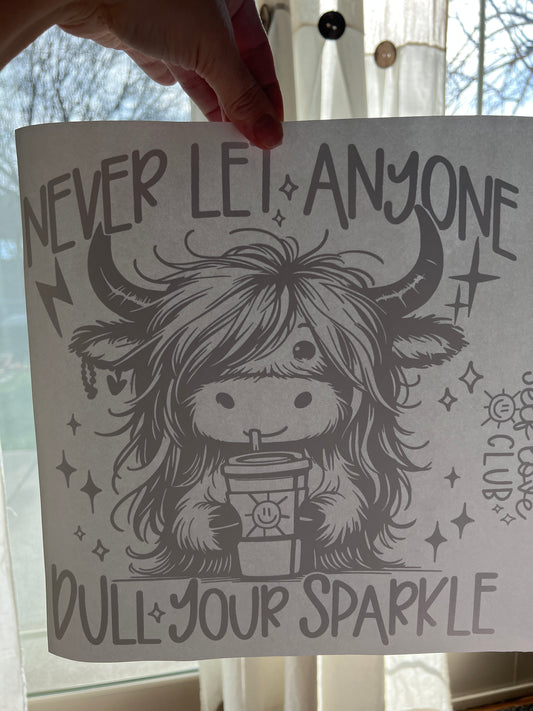 NEVER LET ANYONE
DULL YOUR SPARKLE
Self Love
CLUB